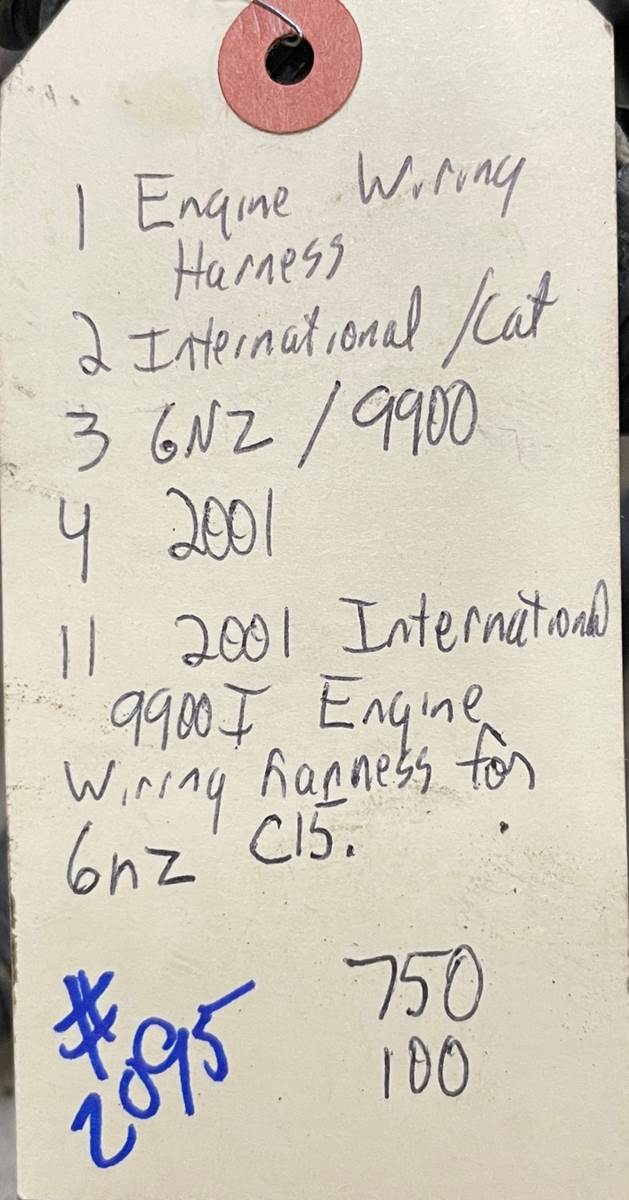 1 Engine Wiring
Harness
2 International /Cat
3 6NZ / 9900
4 2001
11 2001 International
9900I Engine
Wiring harness for
6nz C15.
#2095
750
100